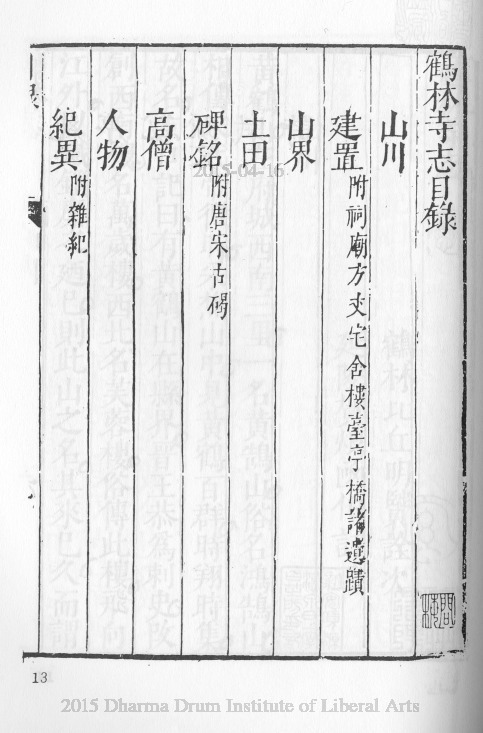 鶴林寺志目錄
山川
建置 附祠廟方丈宅舍樓臺亭橋諸遺蹟
山界
土田
碑銘 附唐宋古碣
高僧
人物
紀異 附雜紀
2015-04-16
13
2015 Dharma Drum Institute of Liberal Arts